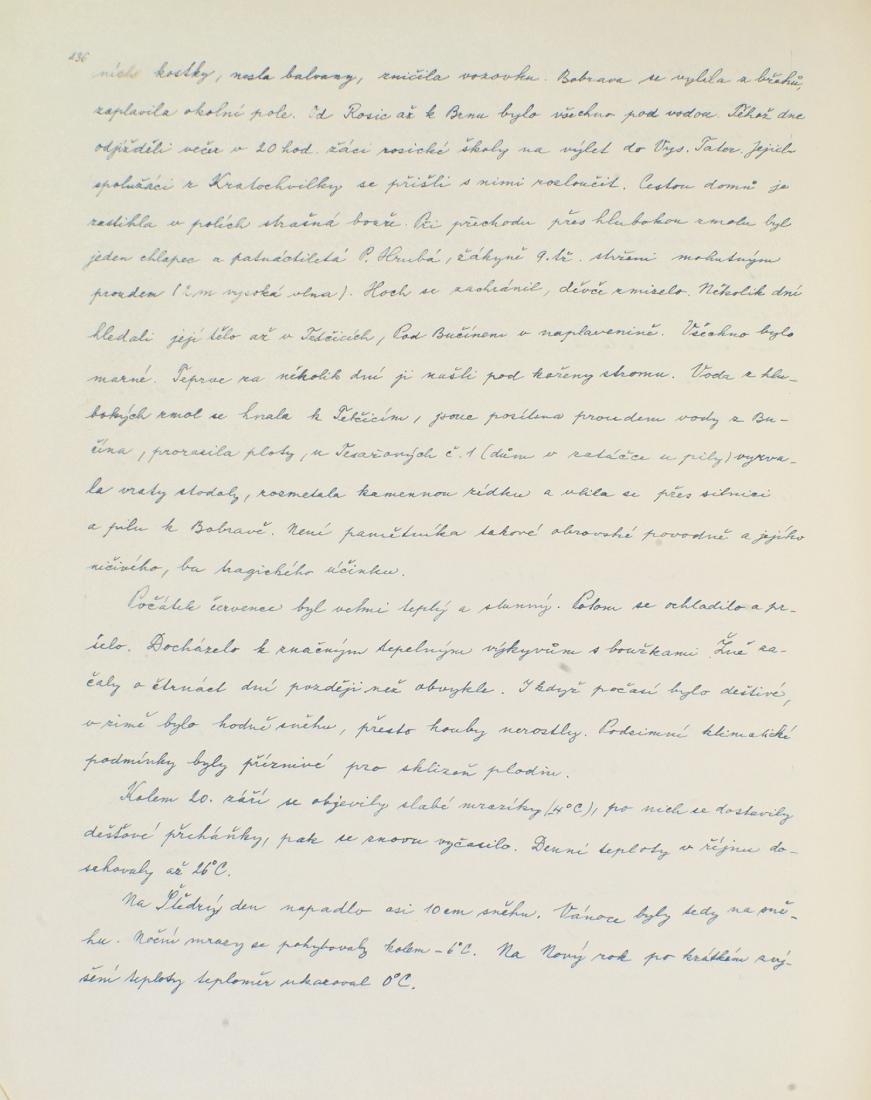 436
ních kostky, nesla balvany, zničila vozovku. Bobrava se vylila z břehů,
zaplavila okolní pole. Od Rosic až k Brnu bylo všechno pod vodou. Téhož dne
odjížděli večer v 20 hod. žáci rosické školy na výlet do Vys. Tater. Jejich
spolužáci z Kratochvilky se přišli s nimi rozloučit. Cestou domů je
zastihla v polích strašná bouře. Při přechodu přes hlubokou zmolu byl
jeden chlapec a patnáctiletá P. Hrubá, žákyně 9. tř. strženi mohutným
proudem (2 m vysoká vlna). Hoch se zachránil, děvče zmizelo. Několik dní
hledali její tělo až v Tetčicích, Pod Bučínem v naplavenině. Všechno bylo
marné. Teprve za několik dní ji našli pod kořeny stromu. Voda z hlu-
bokých zmol se hnala k Tetčicím, jsouc posílena proudem vody z Bu-
čína, prorazila ploty, u Tesařových č. 1 (dům v zatáčce u pily) vyrva-
la vraty stodoly, rozmetala kamennou zídku a vlila se přes silnici
a pilu k Bobravě. Není pamětníka takové obrovské povodně a jejího
ničivého, ba tragického účinku.
Počátek července byl velmi teplý a slunný. Potom se ochladilo a pr-
šelo. Docházelo k značným tepelným výkyvům s bouřkami. Žně za-
čaly o čtrnáct dní později než obvykle. I když počasí bylo deštivé,
v zimě bylo hodně sněhu, přesto houby nerostly. Podzimní klimatické
podmínky byly příznivé pro sklizeň plodin.
Kolem 20. září se objevily slabé mrazíky (4°C), po nich se dostavily
dešťové přeháňky, pak se znovu vyčasilo. Denní teploty v říjnu do-
sahovaly až 26°C.
Na Štědrý den napadlo asi 10 cm sněhu. Vánoce byly tedy na sně-
hu. Noční mrazy se pohybovaly kolem -6°C. Na Nový rok po krátkém zvý-
šení teploty teploměr ukazoval 0°C.